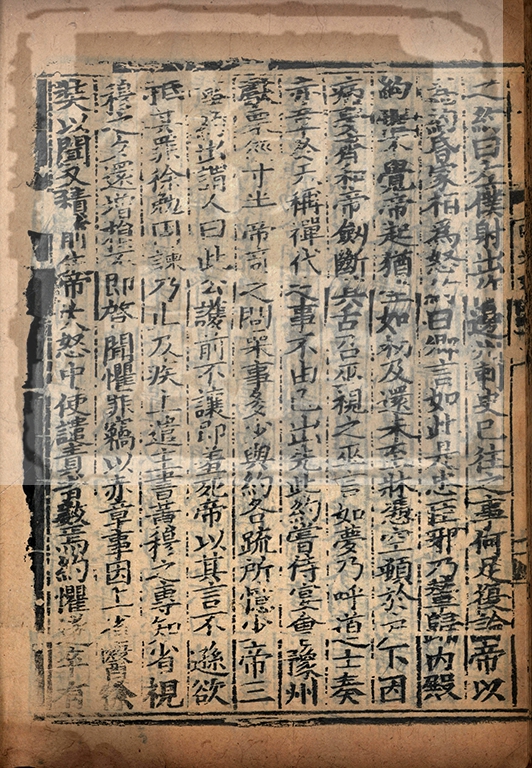 之約曰左僕射出作邊州刺史已往之事何足復論帝以
為約昏家相為怒約曰卿言如此是忠臣邪乃輦歸內殿
約懼不覺帝起猶坐如初及還未至牀憑空頓於戶下因
病夢齊和帝劍斷其舌召巫視之巫言如夢乃呼道士奏
赤章於天稱禪代之事不由己出先此約嘗侍宴會豫州
獻栗徑寸半帝奇之問栗事多少與約各疏所憶少帝三
事約出謂人曰此公護前不讓即羞死帝以其言不遜欲
抵其罪徐勉固諫乃止及疾上遣主書黃穆之專知省視
穆之夕還增損不即啓聞懼罪竊以赤章事因上省醫徐
奘以聞又積前失帝大怒中使譴責者數焉約懼遂卒有